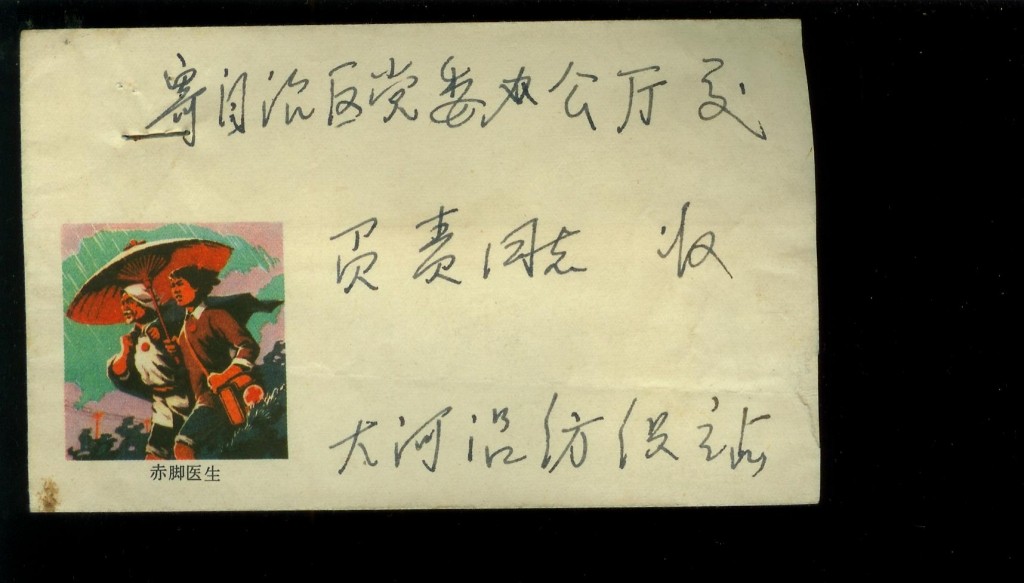 寄自治区党委办公厅交
负责同志 收
大河沿纺织站
赤脚医生